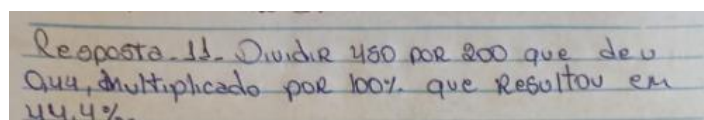 Resposta-11- Dividir 450 POR 200 que deu
0,44, multiplicado POR 100% que Resultou em
44,4%.